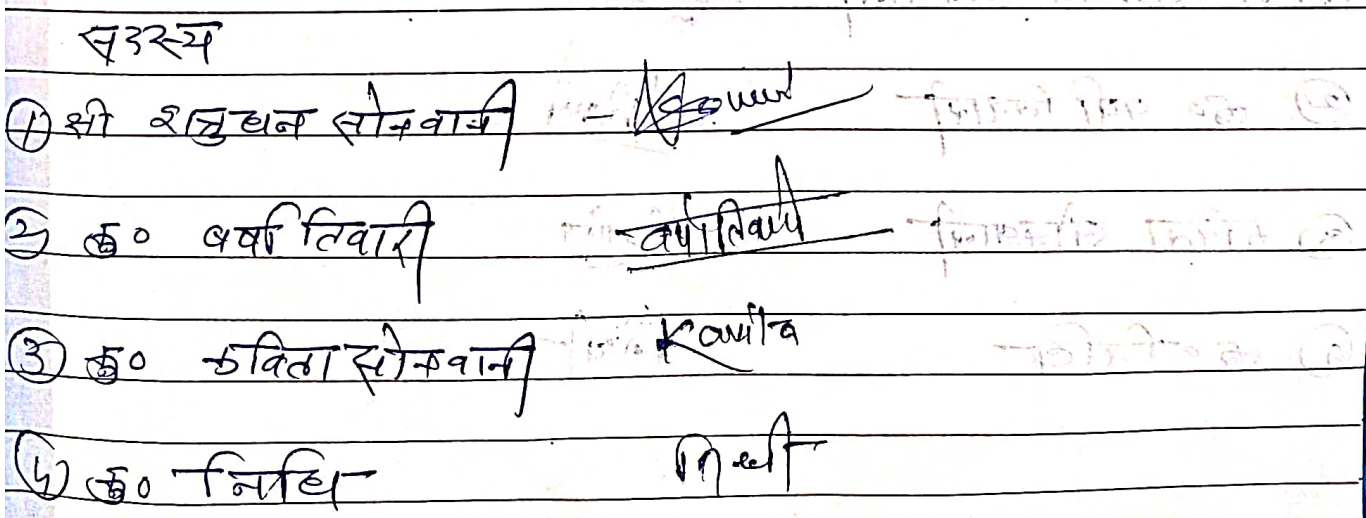 सदस्य
① श्री शत्रुघन सोनवानी -
② कु० वर्षा तिवारी वर्षा तिवारी
③ कु० कविता सोनवानी Kavita
④ कु० निधि निधी